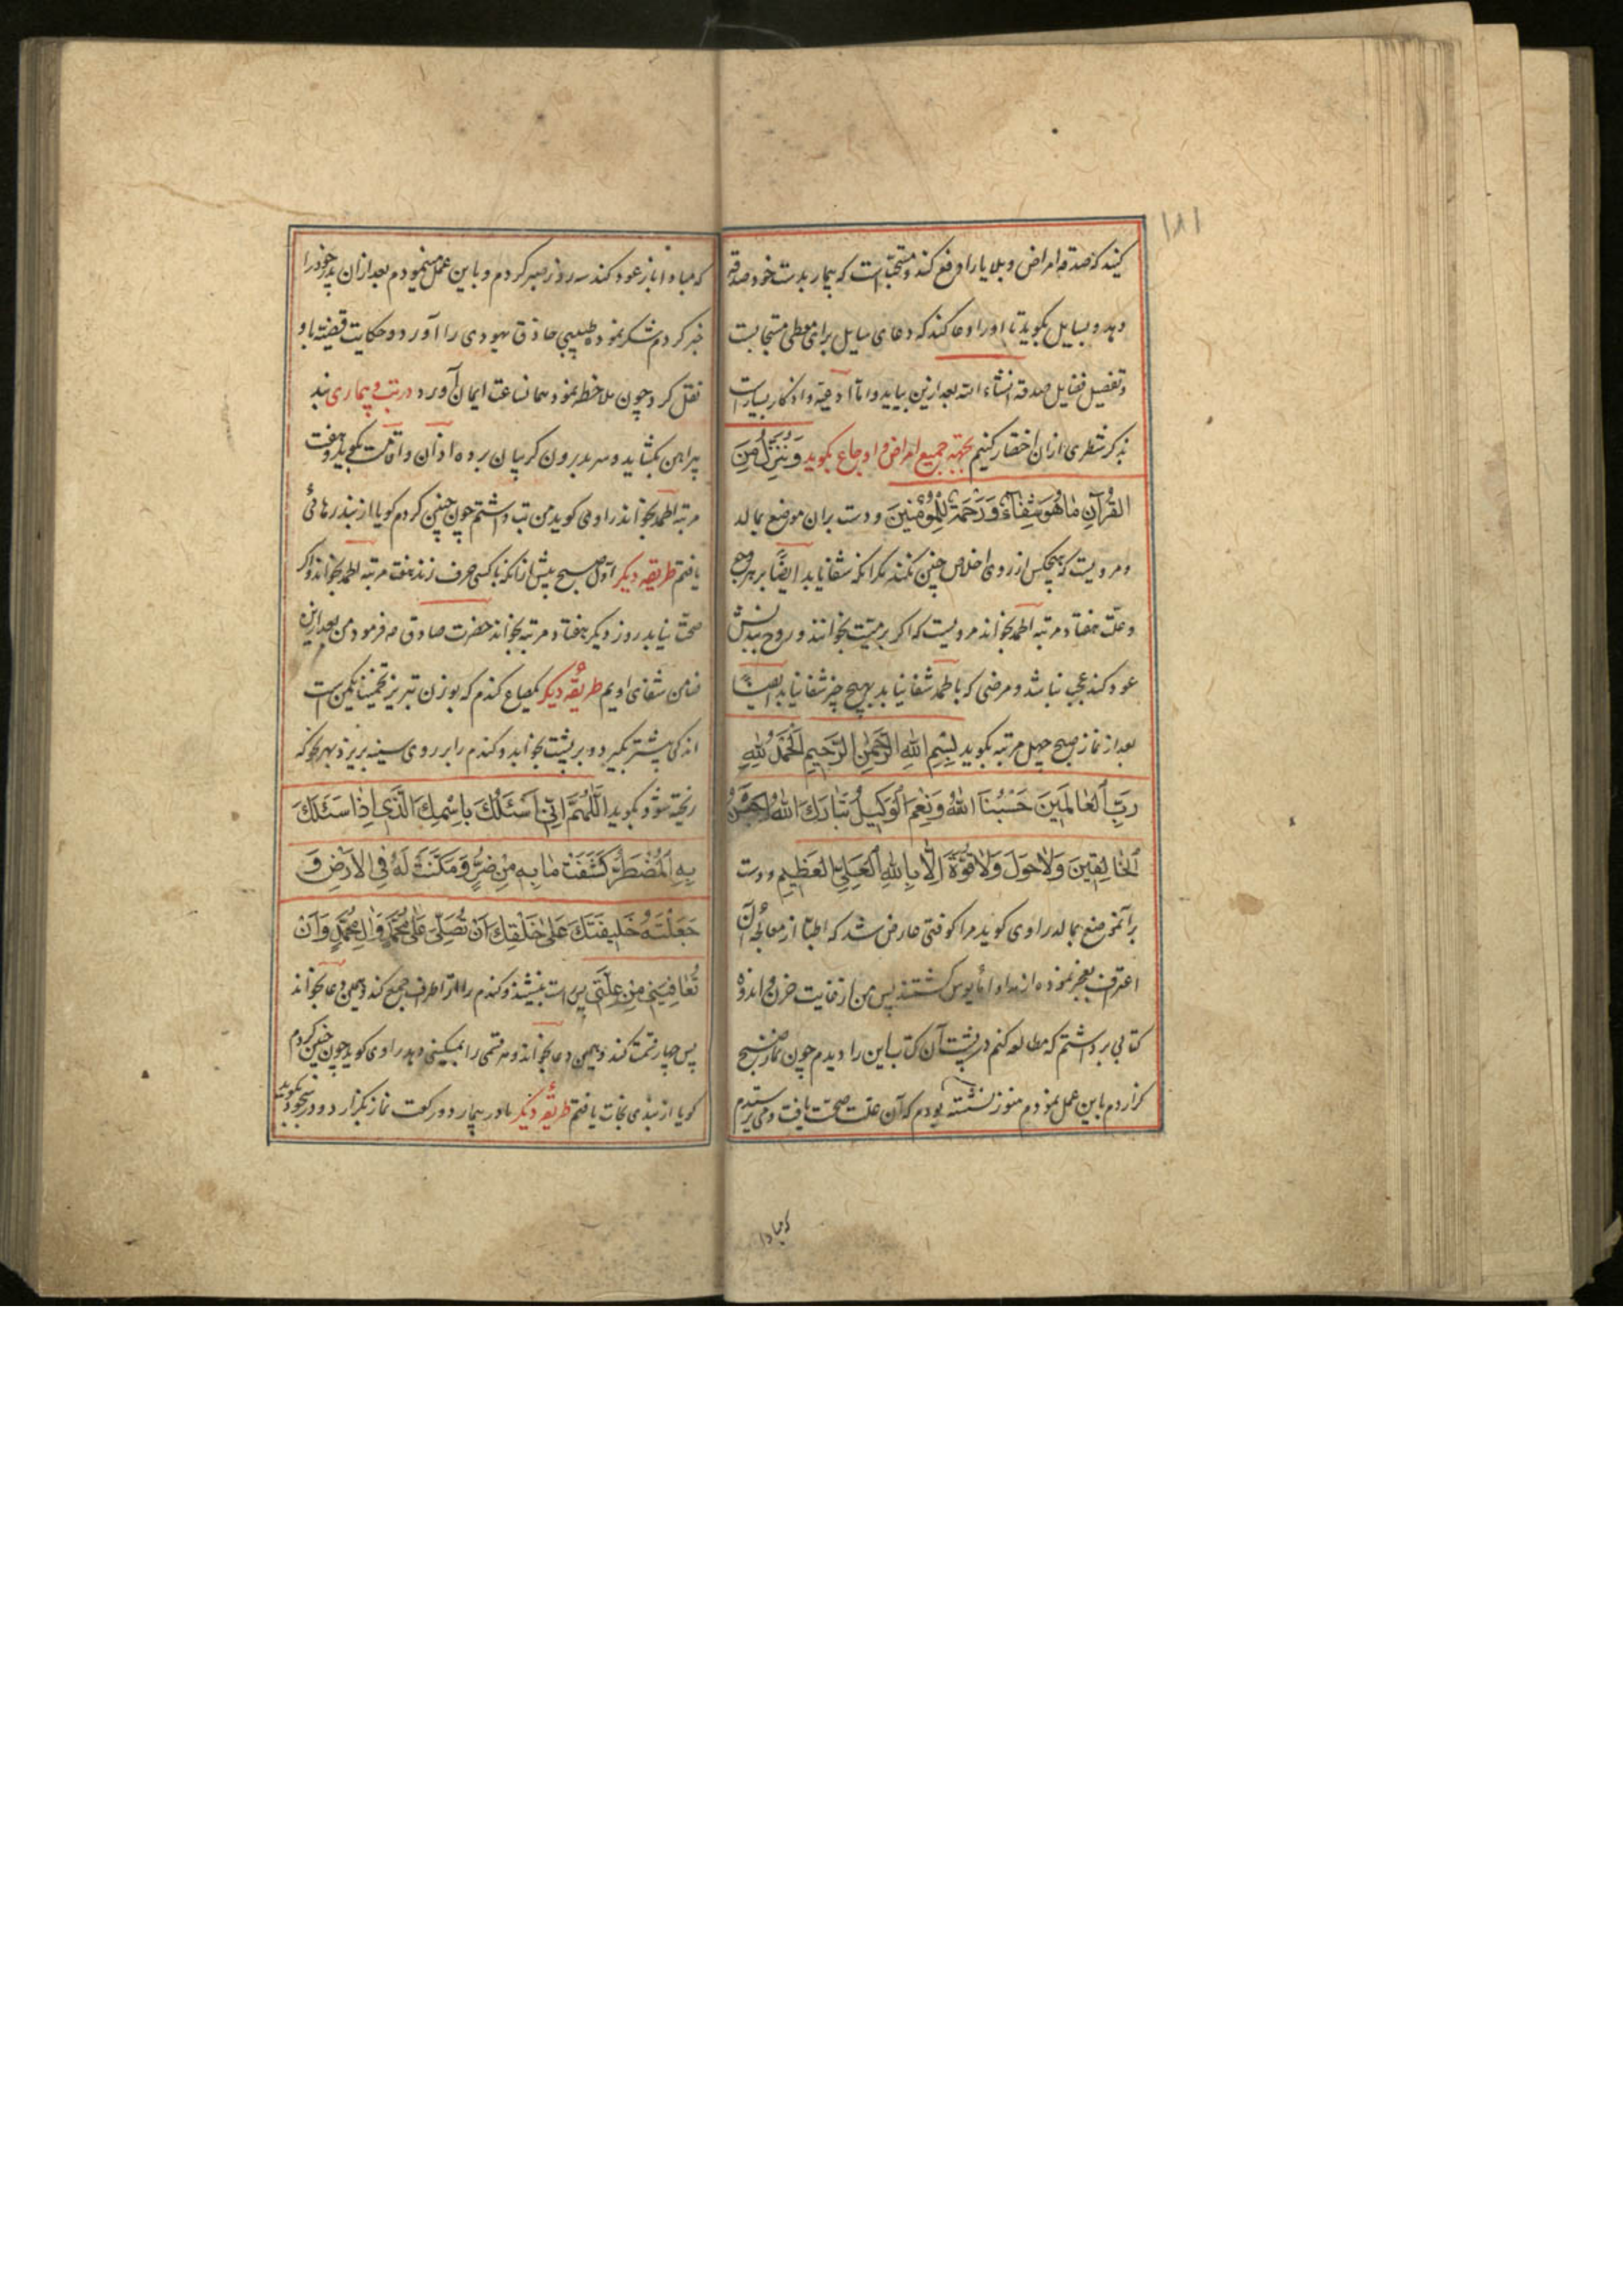 ۱۸۱
کنید که صدقه امراض و بلایا را دفع کند و مستحبّ است که بیمار بدست خود صدقه
دهد و بسایل بکوید تا او را دعا کند که دعای سایل برای معطی مستجابست
و تفصیل فضایل صدقه انشاء الله بعد ازین بیاید و امّا ادعیه و اذکار بسیارست
بذکر شطری از ان اختصار کنیم بجهة جمیع امراض و اوجاع بکوید وَنُنَزِّلُ مِنَ
القُرآنِ مٰا هُوَ شِفٰاءٌ وَرَحْمَةٌ لِلْمُؤْمِنینَ و دست بران موضع بمالد
و مرویست که هیچکس از روی اخلاص چنین نکند مکر انکه شفا یابد ایضًا بر هر وجع
و علّت هفتاد مرتبه الحمد بخواند مرویست که اکر بر میّت بخوانند و روح ببدنش
عود کند عجب نباشد و مرضی که با الحمد شفا نیابد بهیچ چیز شفا نیابد ایضًا
بعد از نماز صبح چهل مرتبه بکوید بِسْمِ اللهِ الرَّحْمٰنِ الرَّحیمِ اَلْحَمْدُ لِلّٰهِ
رَبِّ اَلْعٰالَمینَ حَسْبُنَا اللهُ وَنِعْمَ اَلْوَکیلُ تَبٰارَكَ اللهُ اَحْسَنُ
اَلْخٰالِقینَ وَلاٰ حَوْلَ وَلاٰ قُوَّةَ اِلّٰا بِاللهِ اَلْعَلِیِّ الْعَظیمِ و دست
برآنموضع بمالد راوی کوید مرا کوفتی عارض شد که اطبّا از معالجۀ آن
اعتراف بعجز نموده از مداوا مأیوس کشتند پس من از غایت حزن و اندوه
کتابی برداشتم که مطالعه کنم در پشت آن کتاب این را دیدم چون نماز صبح
کزاردم باین عمل نمودم هنوز نشسته بودم که آن علّت صحّت یافت و می ترسیدم
که مبادا
که مبادا باز عود کند سه روز صبر کردم و باین عمل مینمودم بعد ازان پدر خود را
خبر کردم شکر نموده طبیبی حاذق یهودی را آورد و حکایت قضیّه باو
نقل کرد چون ملاحظه نمود همانساعت ایمان آورد در تب و بیماری بند
پیراهن بکشاید و سر بدرون کریبان برده اذان و اقامت بکوید و هفت
مرتبه الحمد بخواند راوی کوید من تب داشتم چون چنین کردم کویا از بند رهائی
یافتم طریقه دیکر اوّل صبح پیش ازانکه با کسی حرف زند هفت مرتبه الحمد بخواند و اکر
صحّت نیابد روز دیکر هفتاد مرتبه بخواند حضرت صادق ع فرمود من بعد ازین
ضامن شفای اویم طریقۀ دیکر یکصاع کندم که بوزن تبریز تخمینا یکمن است
اندکی بیشتر بکیرد و بر پشت بخوابد و کندم را بر روی سینه بریزد بهر نحو که
ریخته شود و بکوید اَللّٰهُمَّ اِنّی اَسْئَلُكَ بِاِسْمِكَ الَّذی اِذٰا سَئَلَكَ
بِهِ اَلْمُضْطَرُّ کَشَفْتَ مٰا بِهِ مِنْ ضُرٍّ وَمَکَّنْتَ لَهُ فِی الْاَرْضِ وَ
جَعَلْتَهُ خَلیفَتَكَ عَلیٰ خَلْقِكَ اَنْ تُصَلِّیَ عَلیٰ مُحَمَّدٍ وَاٰلِ مُحَمَّدٍ وَاَنْ
تُعٰافِیَنی مِنْ عِلَّتی پس راست بنشیند و کندم را از اطراف جمع کند و همین دعا بخواند
پس چهار قسمت کند و همین دعا بخواند و هر قسمی را بمسکینی دهد راوی کوید چون چنین کردم
کویا از بندی نجات یافتم طریقۀ دیکر مادر بیمار دو رکعت نماز بکزارد و در سجود بکوید